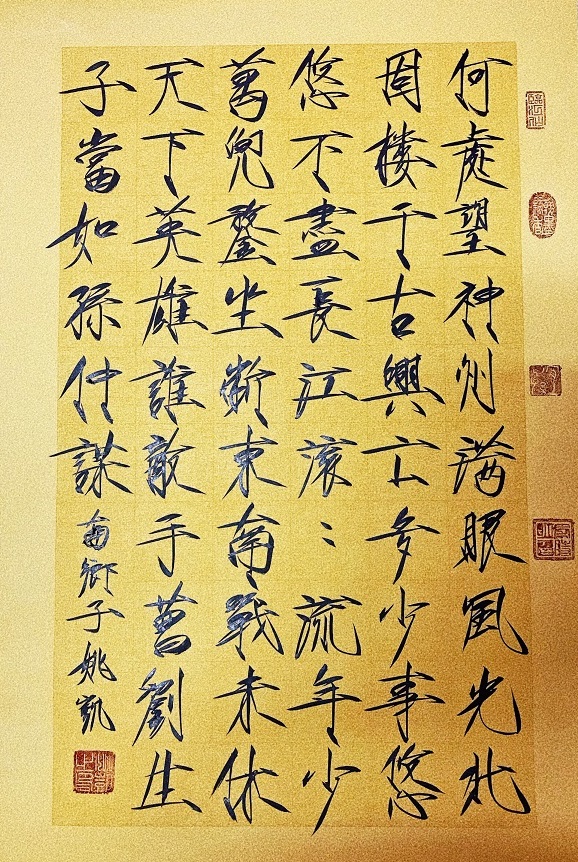 何處望神州滿眼風光北
固樓千古興亡多少事悠
悠不盡長江滾〻流年少
萬兜鍪坐斷東南戰未休
天下英雄誰敵手曹劉生
子當如孫仲謀南鄉子姚凱